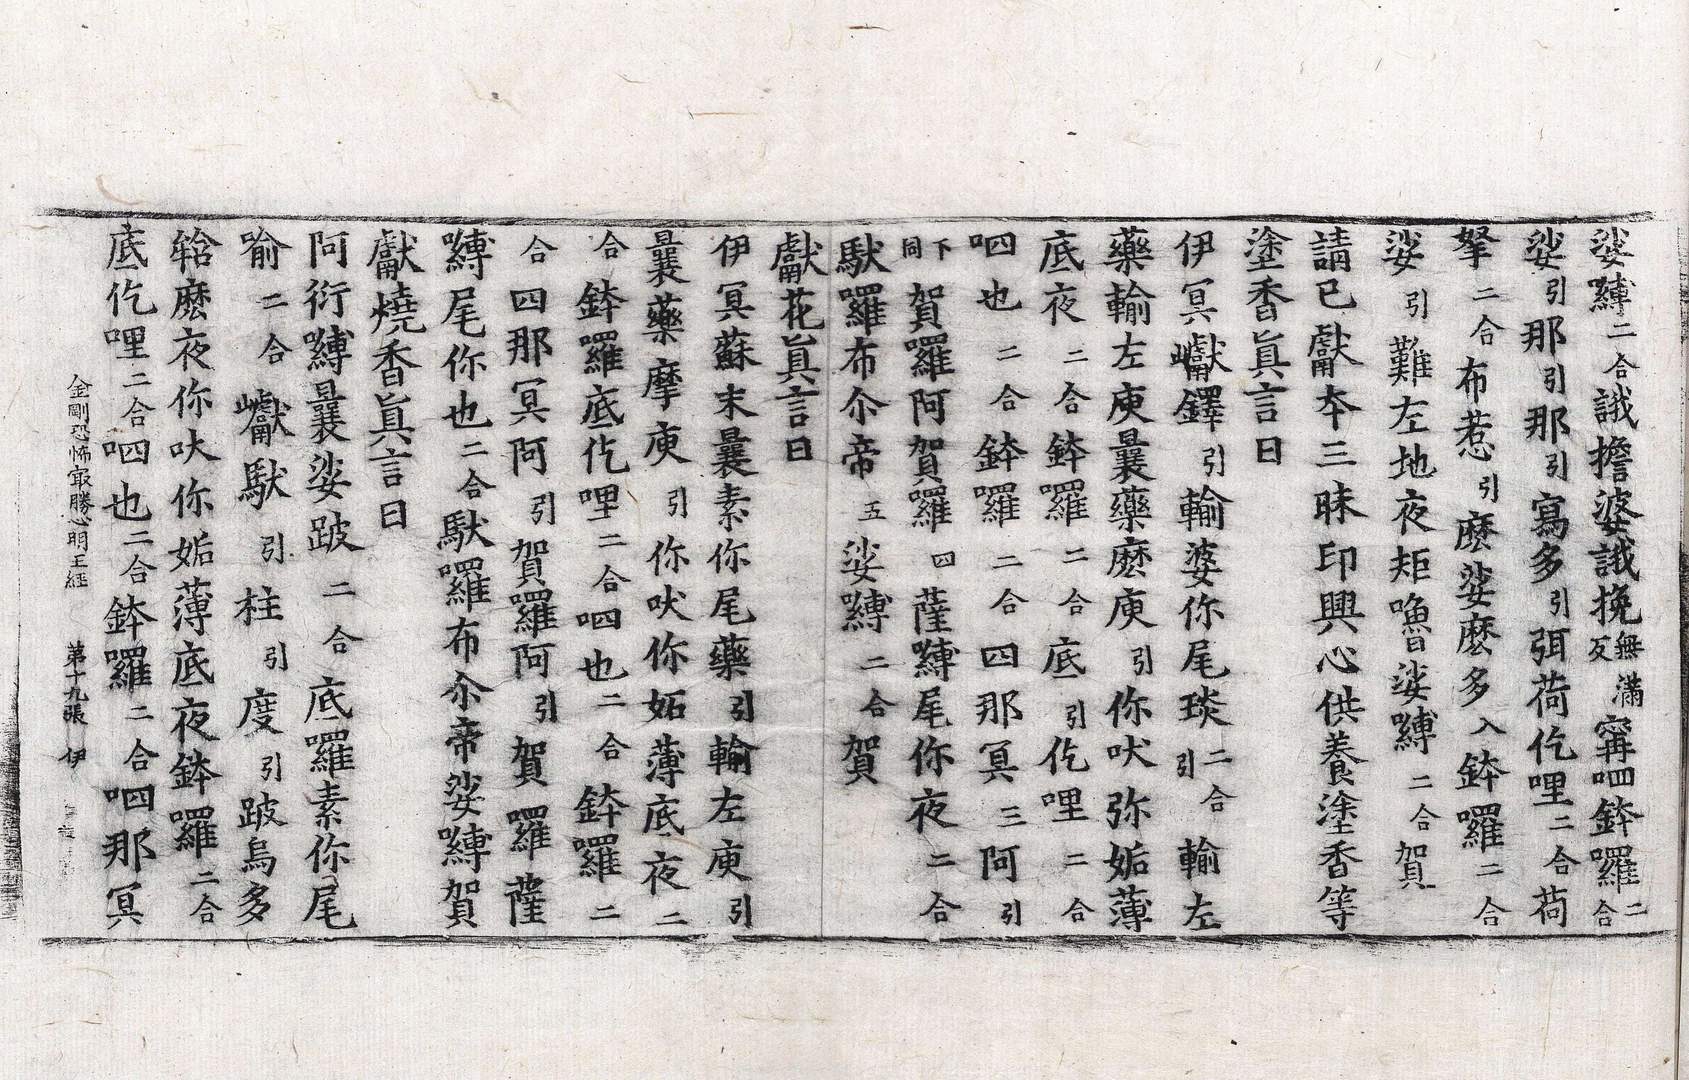 娑嚩二合誐擔婆誐挽無滿反寗呬鉢囉二合
娑引那引那引寫多引弭荷仡哩二合荷
拏二合布惹引麼娑麼多入鉢囉二合
娑引難左地夜矩嚕娑嚩二合賀
請已獻本三昧印興心供養塗香等
塗香眞言曰
伊冥巘鐸引輸婆你尾琰二合引輸左
藥輸左庾曩藥麼庾引你吠弥妬薄
底夜二合鉢囉二合底引仡哩二合
呬也二合鉢囉二合呬那冥三阿引
下同賀囉阿賀囉四薩嚩尾你夜二合
馱囉布尒帝五娑嚩二合賀
獻花眞言曰
伊冥蘇末曩素你尾藥引輸左庾引
曩藥摩庾引你吠你妬薄底夜二
合鉢囉底仡哩二合呬也二合鉢囉二
合呬那冥阿引賀囉阿引賀囉薩
嚩尾你也二合馱囉布尒帝娑嚩賀
獻燒香眞言曰
阿衍嚩曩娑跛二合底羅素你尾
喻二合巘馱引柱引度引跛烏多
輪麼夜你吠你妬薄底夜鉢囉二合
底仡哩二合呬也二合鉢囉二合呬那冥
金剛恐怖㝡勝心明王經 第十九張 伊